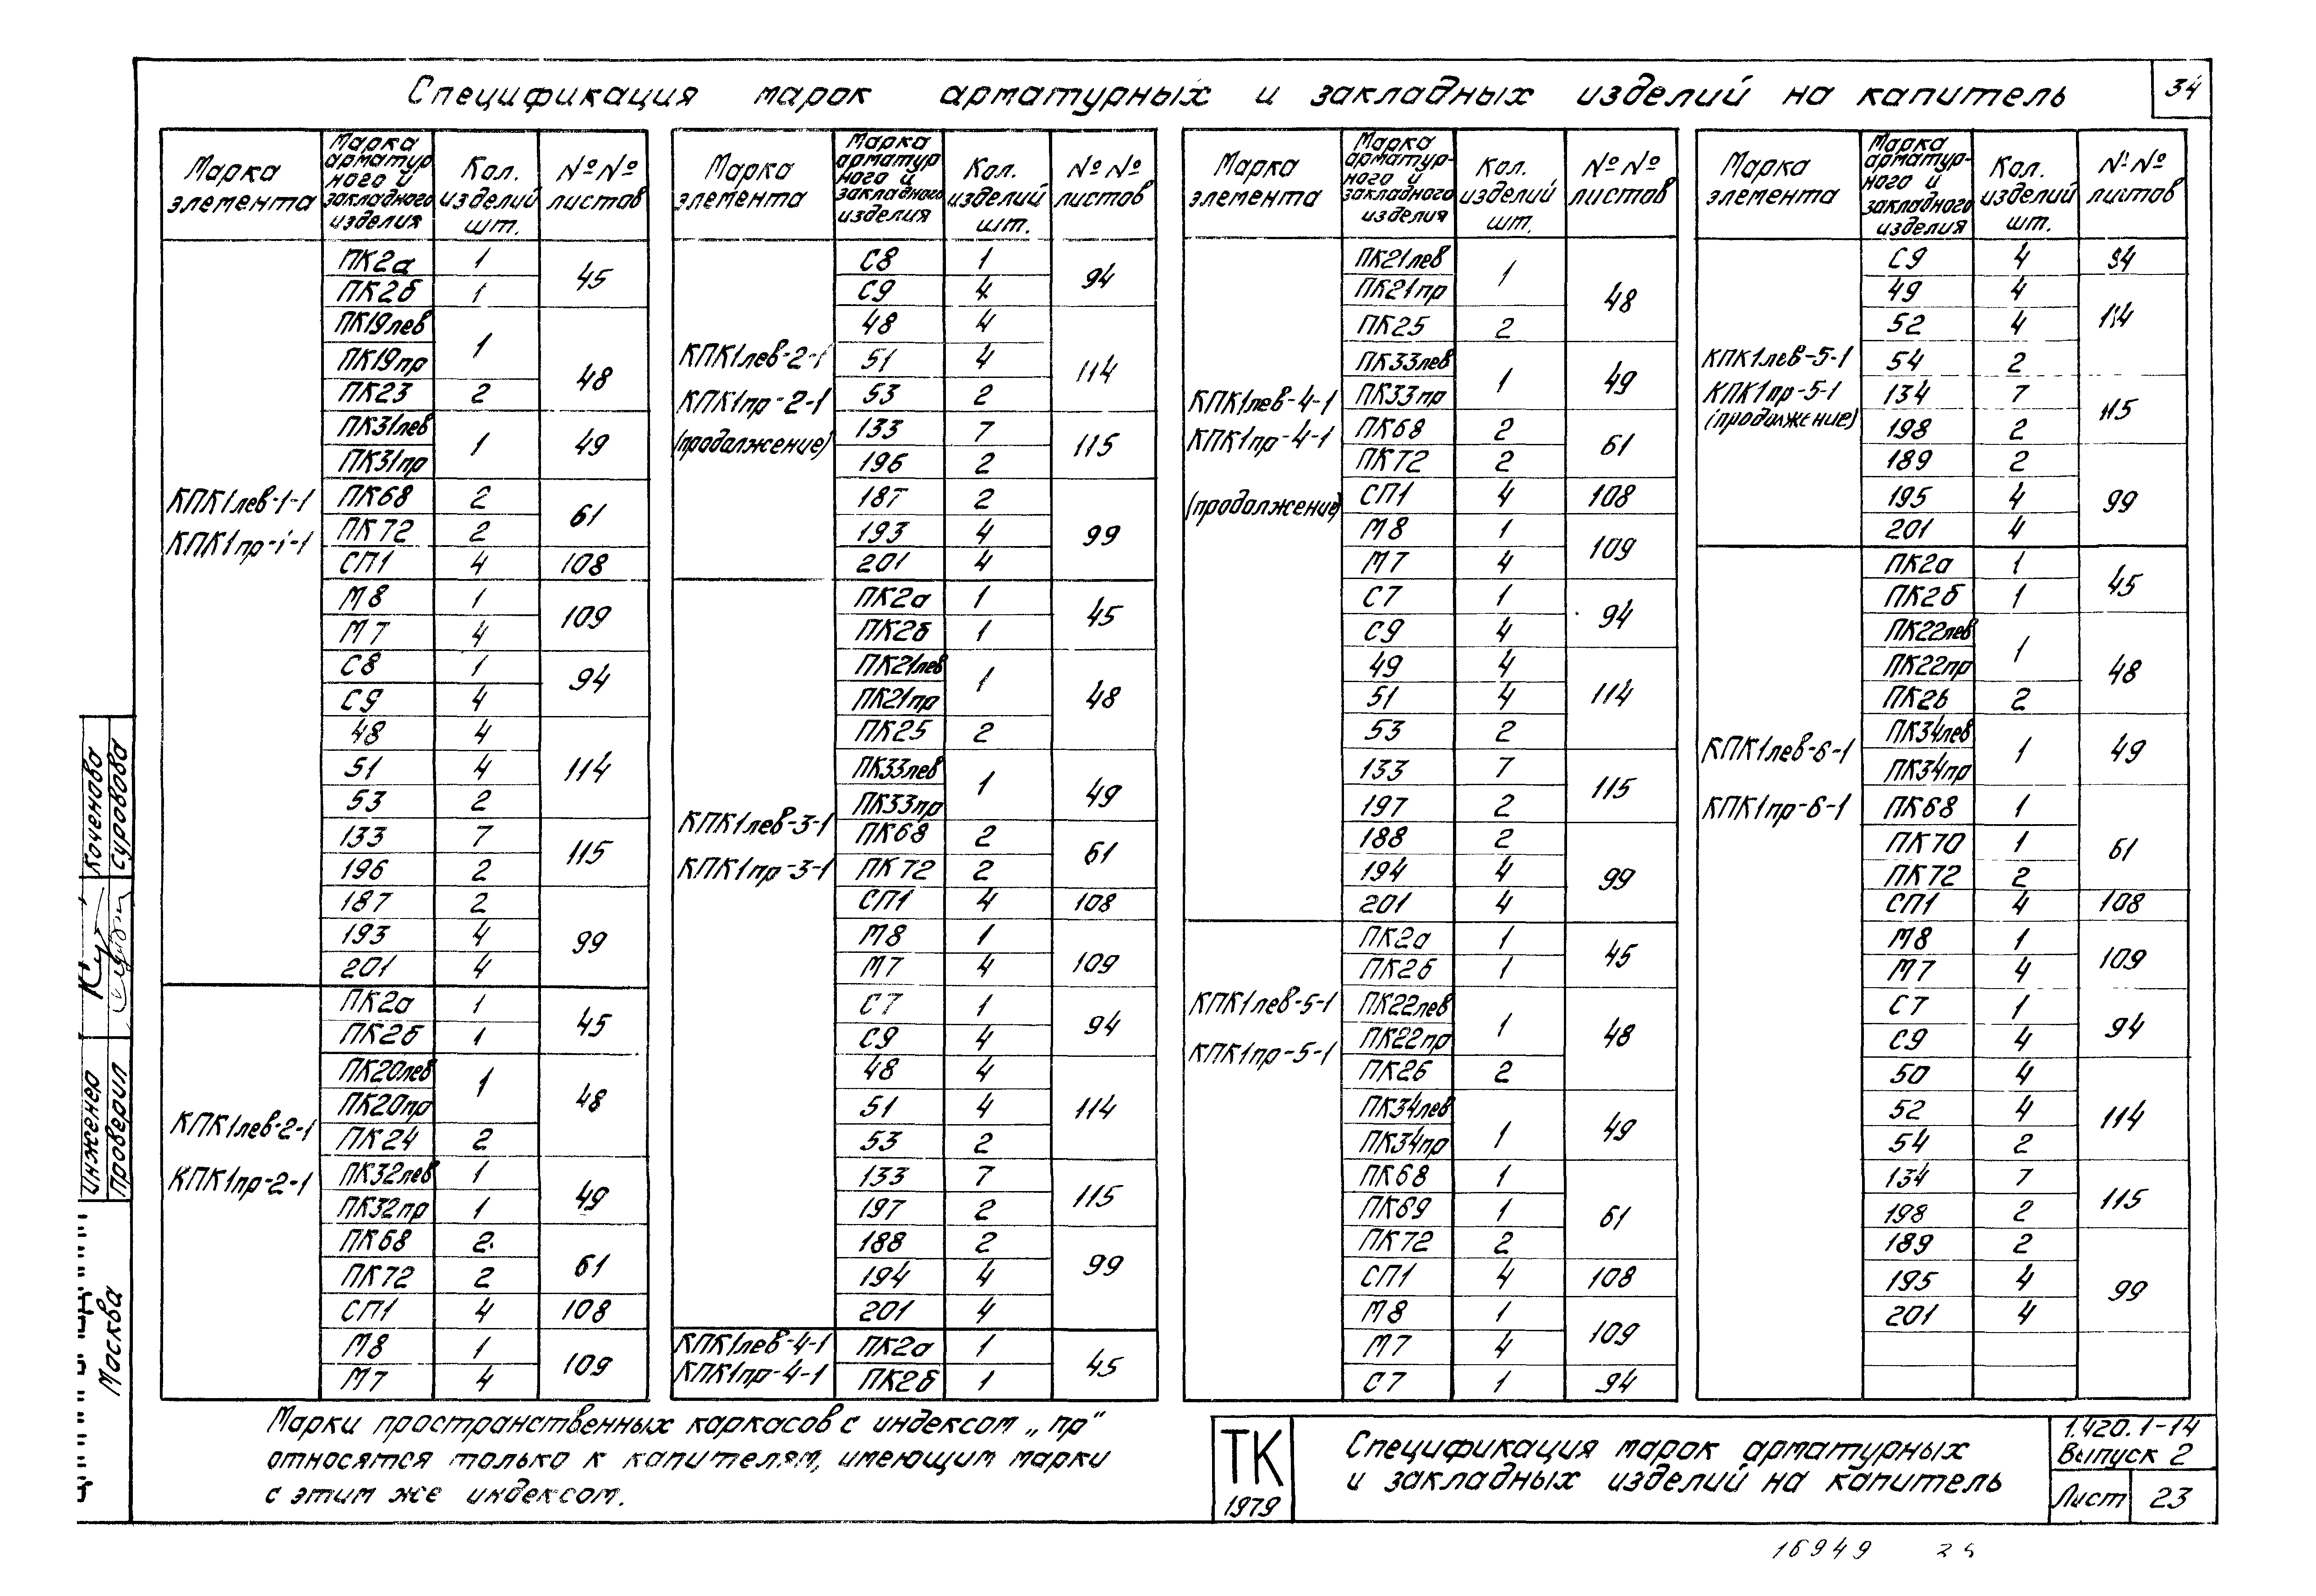 Спецификация марок арматурных и закладных изделий на капитель
34
Марка элемента | Марка арматурного и закладного изделия | Кол. изделий шт. | №№ листов
КПК1лев-1-1
КПК1пр-1-1
ПК2а 1 45
ПК2б 1
ПК19лев 1 48
ПК19пр
ПК23 2
ПК31лев 1 49
ПК31пр
ПК68 2 61
ПК72 2
СП1 4 108
М8 1 109
М7 4
С8 1 94
С9 4
48 4 114
51 4
53 2
133 7 115
196 2
187 2 99
193 4
201 4
КПК1лев-2-1
КПК1пр-2-1
ПК2а 1 45
ПК2б 1
ПК20лев 1 48
ПК20пр
ПК24 2
ПК32лев 1 49
ПК32пр 1
ПК68 2 61
ПК72 2
СП1 4 108
М8 1 109
М7 4
Марка элемента | Марка арматурного и закладного изделия | Кол. изделий шт. | №№ листов
КПК1лев-2-1
КПК1пр-2-1
(продолжение)
С8 1 94
С9 4
48 4 114
51 4
53 2
133 7 115
196 2
187 2 99
193 4
201 4
КПК1лев-3-1
КПК1пр-3-1
ПК2а 1 45
ПК2б 1
ПК21лев 1 48
ПК21пр
ПК25 2
ПК33лев 1 49
ПК33пр
ПК68 2 61
ПК72 2
СП1 4 108
М8 1 109
М7 4
С7 1 94
С9 4
48 4 114
51 4
53 2
133 7 115
197 2
188 2 99
194 4
201 4
КПК1лев-4-1
КПК1пр-4-1
ПК2а 1 45
ПК2б 1
Марка элемента | Марка арматур-ного и закладного изделия | Кол. изделий шт. | №№ листов
КПК1лев-4-1
КПК1пр-4-1
(продолжение)
ПК21лев 1 48
ПК21пр
ПК25 2
ПК33лев 1 49
ПК33пр
ПК68 2 61
ПК72 2
СП1 4 108
М8 1 109
М7 4
С7 1 94
С9 4
49 4 114
51 4
53 2
133 7 115
197 2
188 2 99
194 4
201 4
КПК1лев-5-1
КПК1пр-5-1
ПК2а 1 45
ПК2б 1
ПК22лев 1 48
ПК22пр
ПК26 2
ПК34лев 1 49
ПК34пр
ПК68 1 61
ПК69 1
ПК72 2
СП1 4 108
М8 1 109
М7 4
С7 1 94
Марка элемента | Марка арматур-ного и закладного изделия | Кол. изделий шт. | №№ листов
КПК1лев-5-1
КПК1пр-5-1
(продолжение)
С9 4 94
49 4 114
52 4
54 2
134 7 115
198 2
189 2 99
195 4
201 4
КПК1лев-6-1
КПК1пр-6-1
ПК2а 1 45
ПК2б 1
ПК22лев 1 48
ПК22пр
ПК26 2
ПК34лев 1 49
ПК34пр
ПК68 1 61
ПК70 1
ПК72 2
СП1 4 108
М8 1 109
М7 4
С7 1 94
С9 4
50 4 114
52 4
54 2
134 7 115
198 2
189 2 99
195 4
201 4
Марки пространственных каркасов с индексом „пр“
относятся только к капителям, имеющим марки
с этим же индексом.
ТК
1979
Спецификация марок арматурных
и закладных изделий на капитель
1.420.1-14
Выпуск 2
Лист 23
Инженер Коченова
Проверил Суровова
Москва
16949